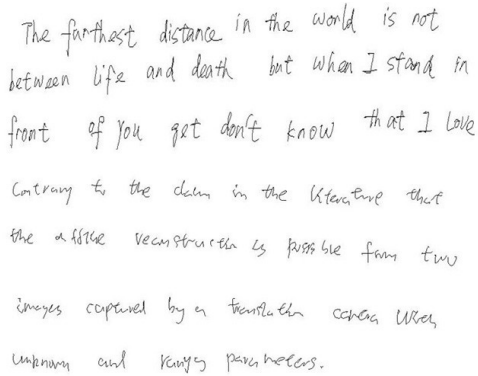 The furthest distance in the world is not
between life and death but when I stand in
front of you yet don't know that I love
Contrary to the claim in the literature that
the affine reconstruction is possible from two
images captured by a translation camera when
unknown and varying parameters.